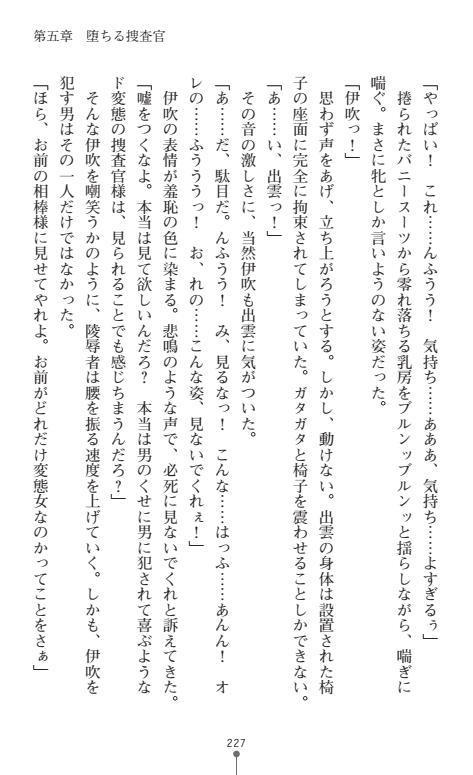 第五章　堕ちる捜査官
「やっばい！　これ……んふぅう！　気持ち……あああ、気持ち……よすぎるぅ」
　捲られたバニースーツから零れ落ちる乳房をブルンッブルンッと揺らしながら、喘ぎに
喘ぐ。まさに牝としか言いようのない姿だった。
「伊吹っ！」
　思わず声をあげ、立ち上がろうとする。しかし、動けない。出雲の身体は設置された椅
子の座面に完全に拘束されてしまっていた。ガタガタと椅子を震わせることしかできない。
「あ……い、出雲っ！」
　その音の激しさに、当然伊吹も出雲に気がついた。
「あ……だ、駄目だ。んふうう！　み、見るなっ！　こんな……はっふ……あんん！　オ
レの……ふうううっ！　お、れの……こんな姿、見ないでくれぇ！」
　伊吹の表情が羞恥の色に染まる。悲鳴のような声で、必死に見ないでくれと訴えてきた。
「嘘をつくなよ。本当は見て欲しいんだろ？　本当は男のくせに男に犯されて喜ぶような
ド変態の捜査官様は、見られることでも感じちまうんだろ？」
　そんな伊吹を嘲笑うかのように、陵辱者は腰を振る速度を上げていく。しかも、伊吹を
犯す男はその一人だけではなかった。
「ほら、お前の相棒様に見せてやれよ。お前がどれだけ変態女なのかってことをさぁ」
227